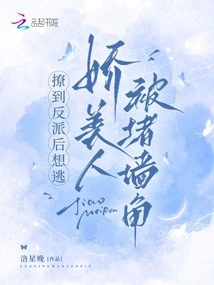 云起书院
撩到反派后想逃
娇美人
被堵墙角
jiao
MeiRen
洛星晚 [作品]